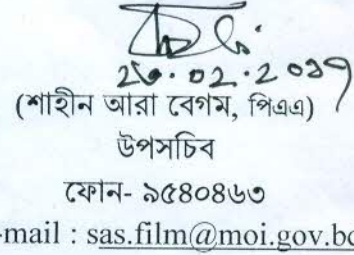 ২৬.০২.২০১৭
(শাহীন আরা বেগম, পিএএ)
উপসচিব
ফোন- ৯৫৪০৪৬৩
-mail : sas.film@moi.gov.bd